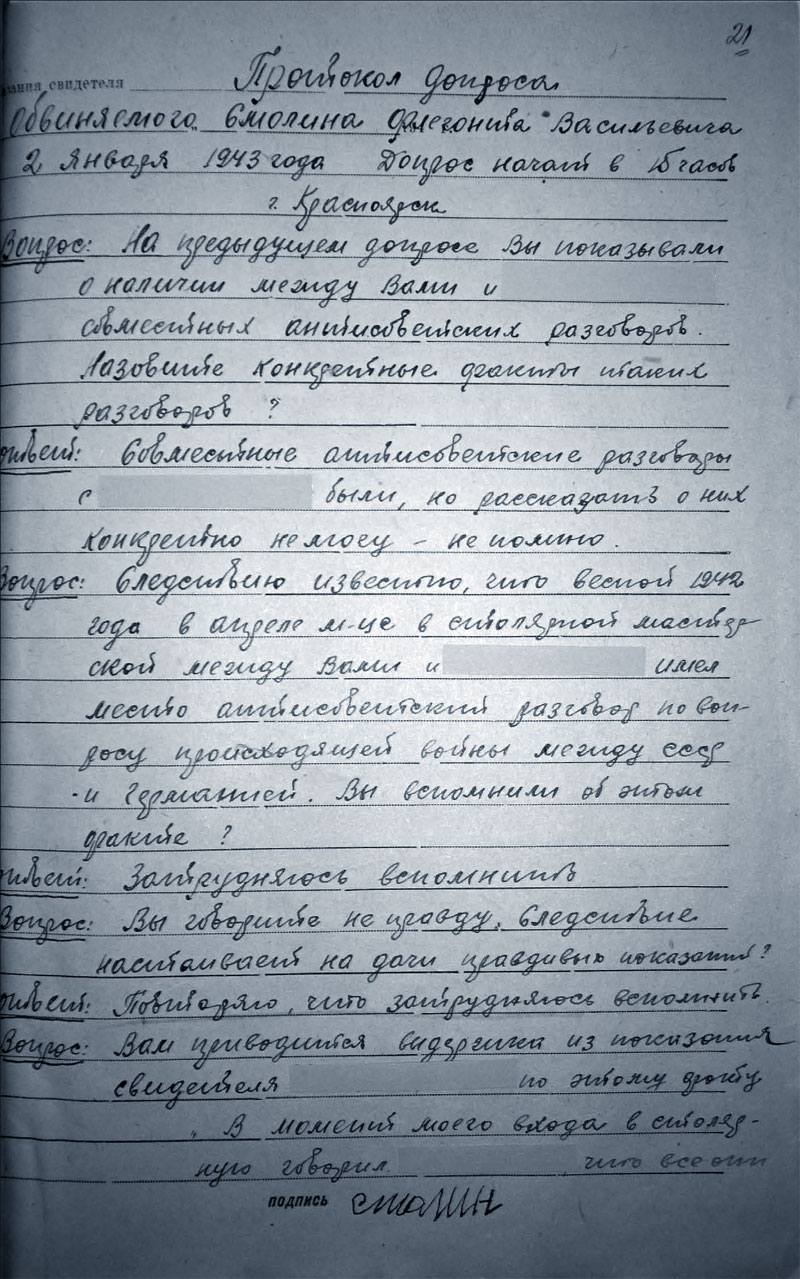 21
ания свидетеля Протокол допроса
Обвиняемого Смолина Флегонта Васильевича
2 января 1943 года Допрос начат в часов
г. Красноярск
Вопрос: На предыдущем допросе Вы показывали
о наличии между Вами и
совместных антисоветских разговоров.
Назовите конкретные факты таких
разговоров ?
ответ: Совместные антисоветские разговоры
с были, но рассказать о них
конкретно не могу – не помню.
Вопрос: Следствию известно, что весной 1942
года в апреле м-це в столярной мастер-
ской между Вами и имел
место антисоветский разговор по воп-
росу происходящей войны между СССР
и Германией. Вы вспомнили об этом
факте ?
ответ: Затрудняюсь вспомнить
Вопрос: Вы говорите не правду. Следствие
настаивает на дачи правдивых показаний?
ответ: Повторяю, что затрудняюсь вспомнить.
Вопрос: Вам приводится выдержка из показания
свидетеля по этому факту
„В момент моего входа в столяр-
ную говорил что все
подпись